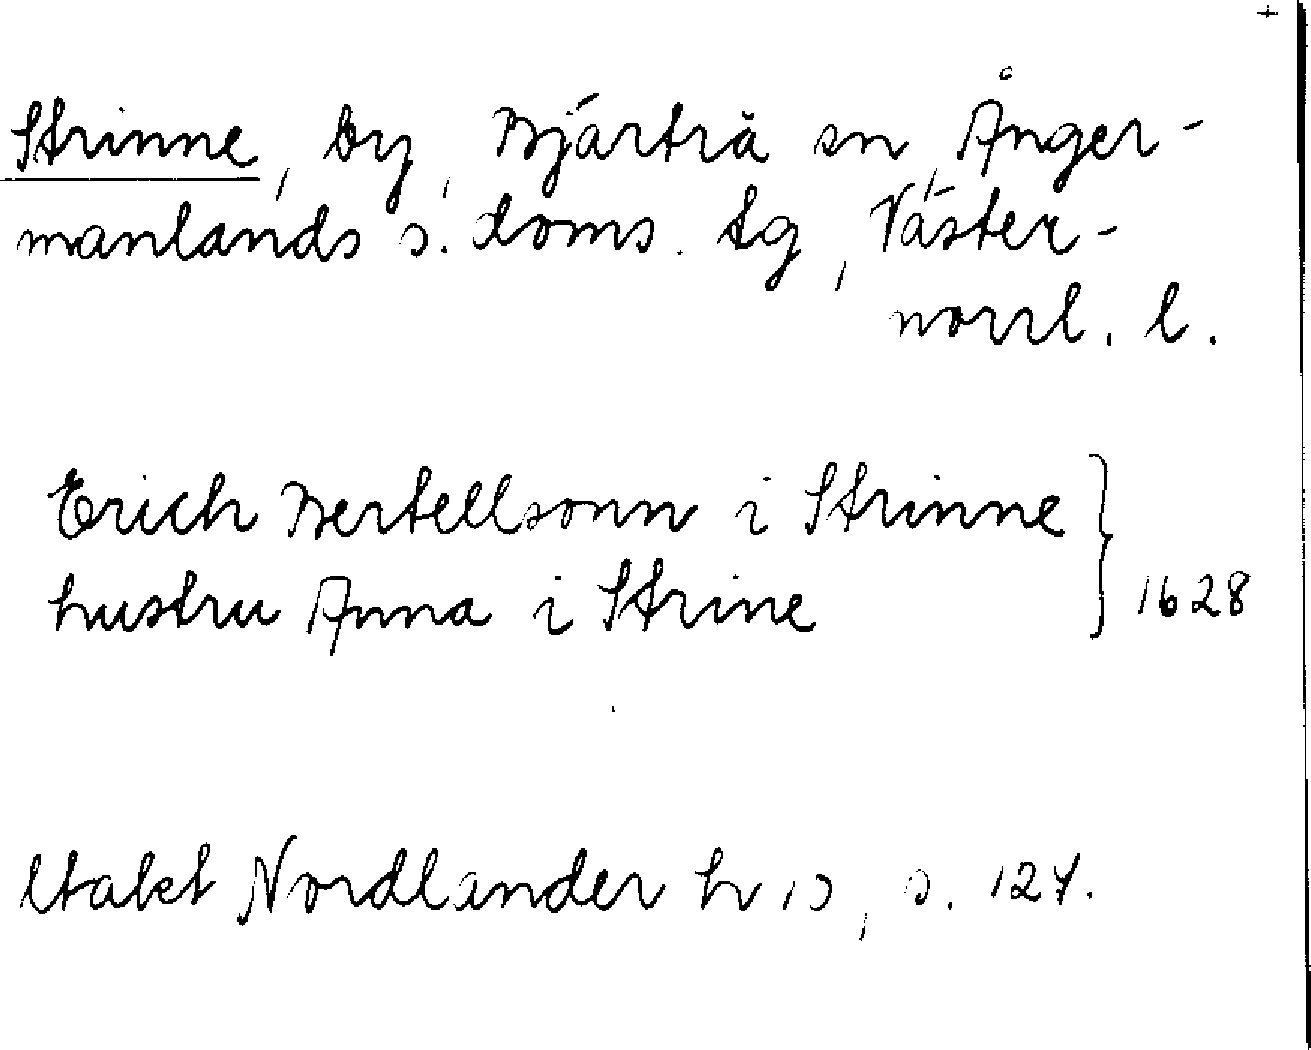 +
Strinne, by, Bjärtrå sn, Ånger-
manlands s. doms. tg, Väster-
norrl. l.
Erich Bertellsonn i Strinne
hustru Anna i Strine } 1628
Nordlander h 13, s. 127.